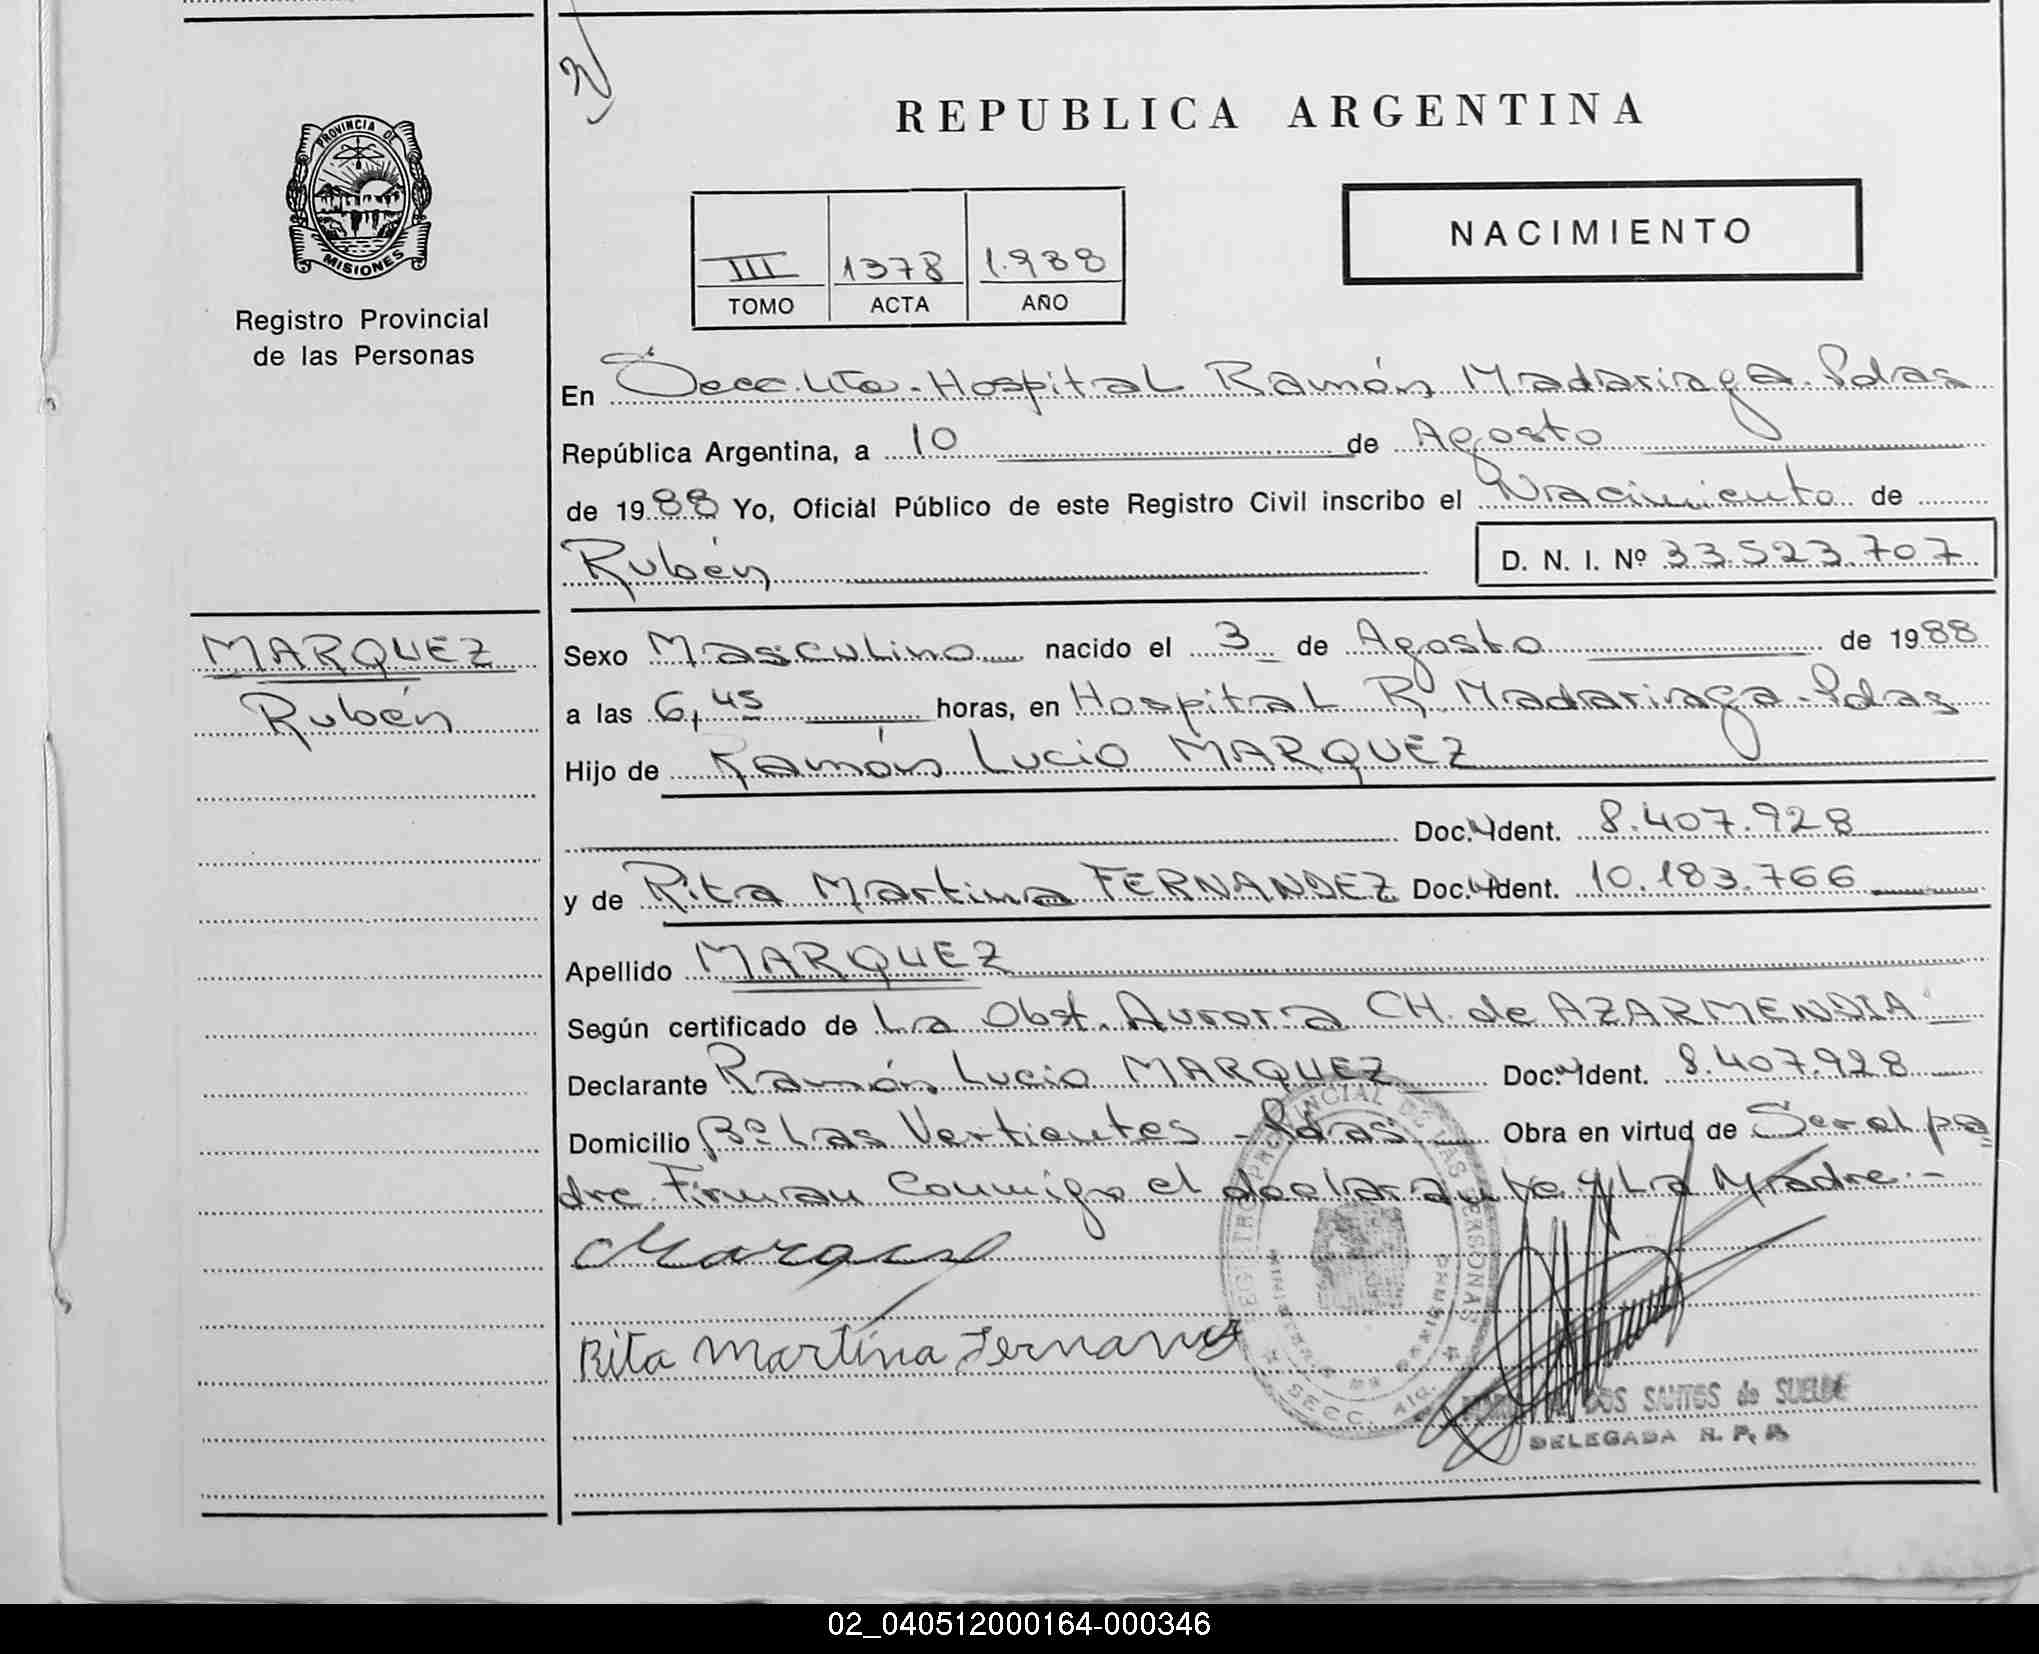 REPUBLICA ARGENTINA
PROVINCIA DE
MISIONES
Registro Provincial
de las Personas
NACIMIENTO
III 1378 1.988
TOMO ACTA AÑO
En Secc. 4ta - Hospital Ramón Madariaga - Pdas
República Argentina, a 10 de Agosto
de 1988 Yo, Oficial Público de este Registro Civil inscribo el Nacimiento de
Rubén D. N. I. Nº 33.523.707
MARQUEZ
Rubén
Sexo Masculino nacido el 3 de Agosto de 1988
a las 6,45 horas, en Hospital R. Madariaga - Pdas
Hijo de Ramón Lucio MARQUEZ
Doc. Ident. 8.407.928
y de Rita Martina FERNANDEZ Doc. Ident. 10.183.766
Apellido MARQUEZ
Según certificado de La Obst. Aurora CH. de AZARMENDIA
Declarante Ramón Lucio MARQUEZ Doc. Ident. 8.407.928
Domicilio Bº Las Vertientes - Pdas Obra en virtud de Ser el pa
dre Firman Conmigo el declarante y La Madre.-
Rita Martina
DOS SANTOS de
DELEGADA R. P. P.
02_040512000164-000346